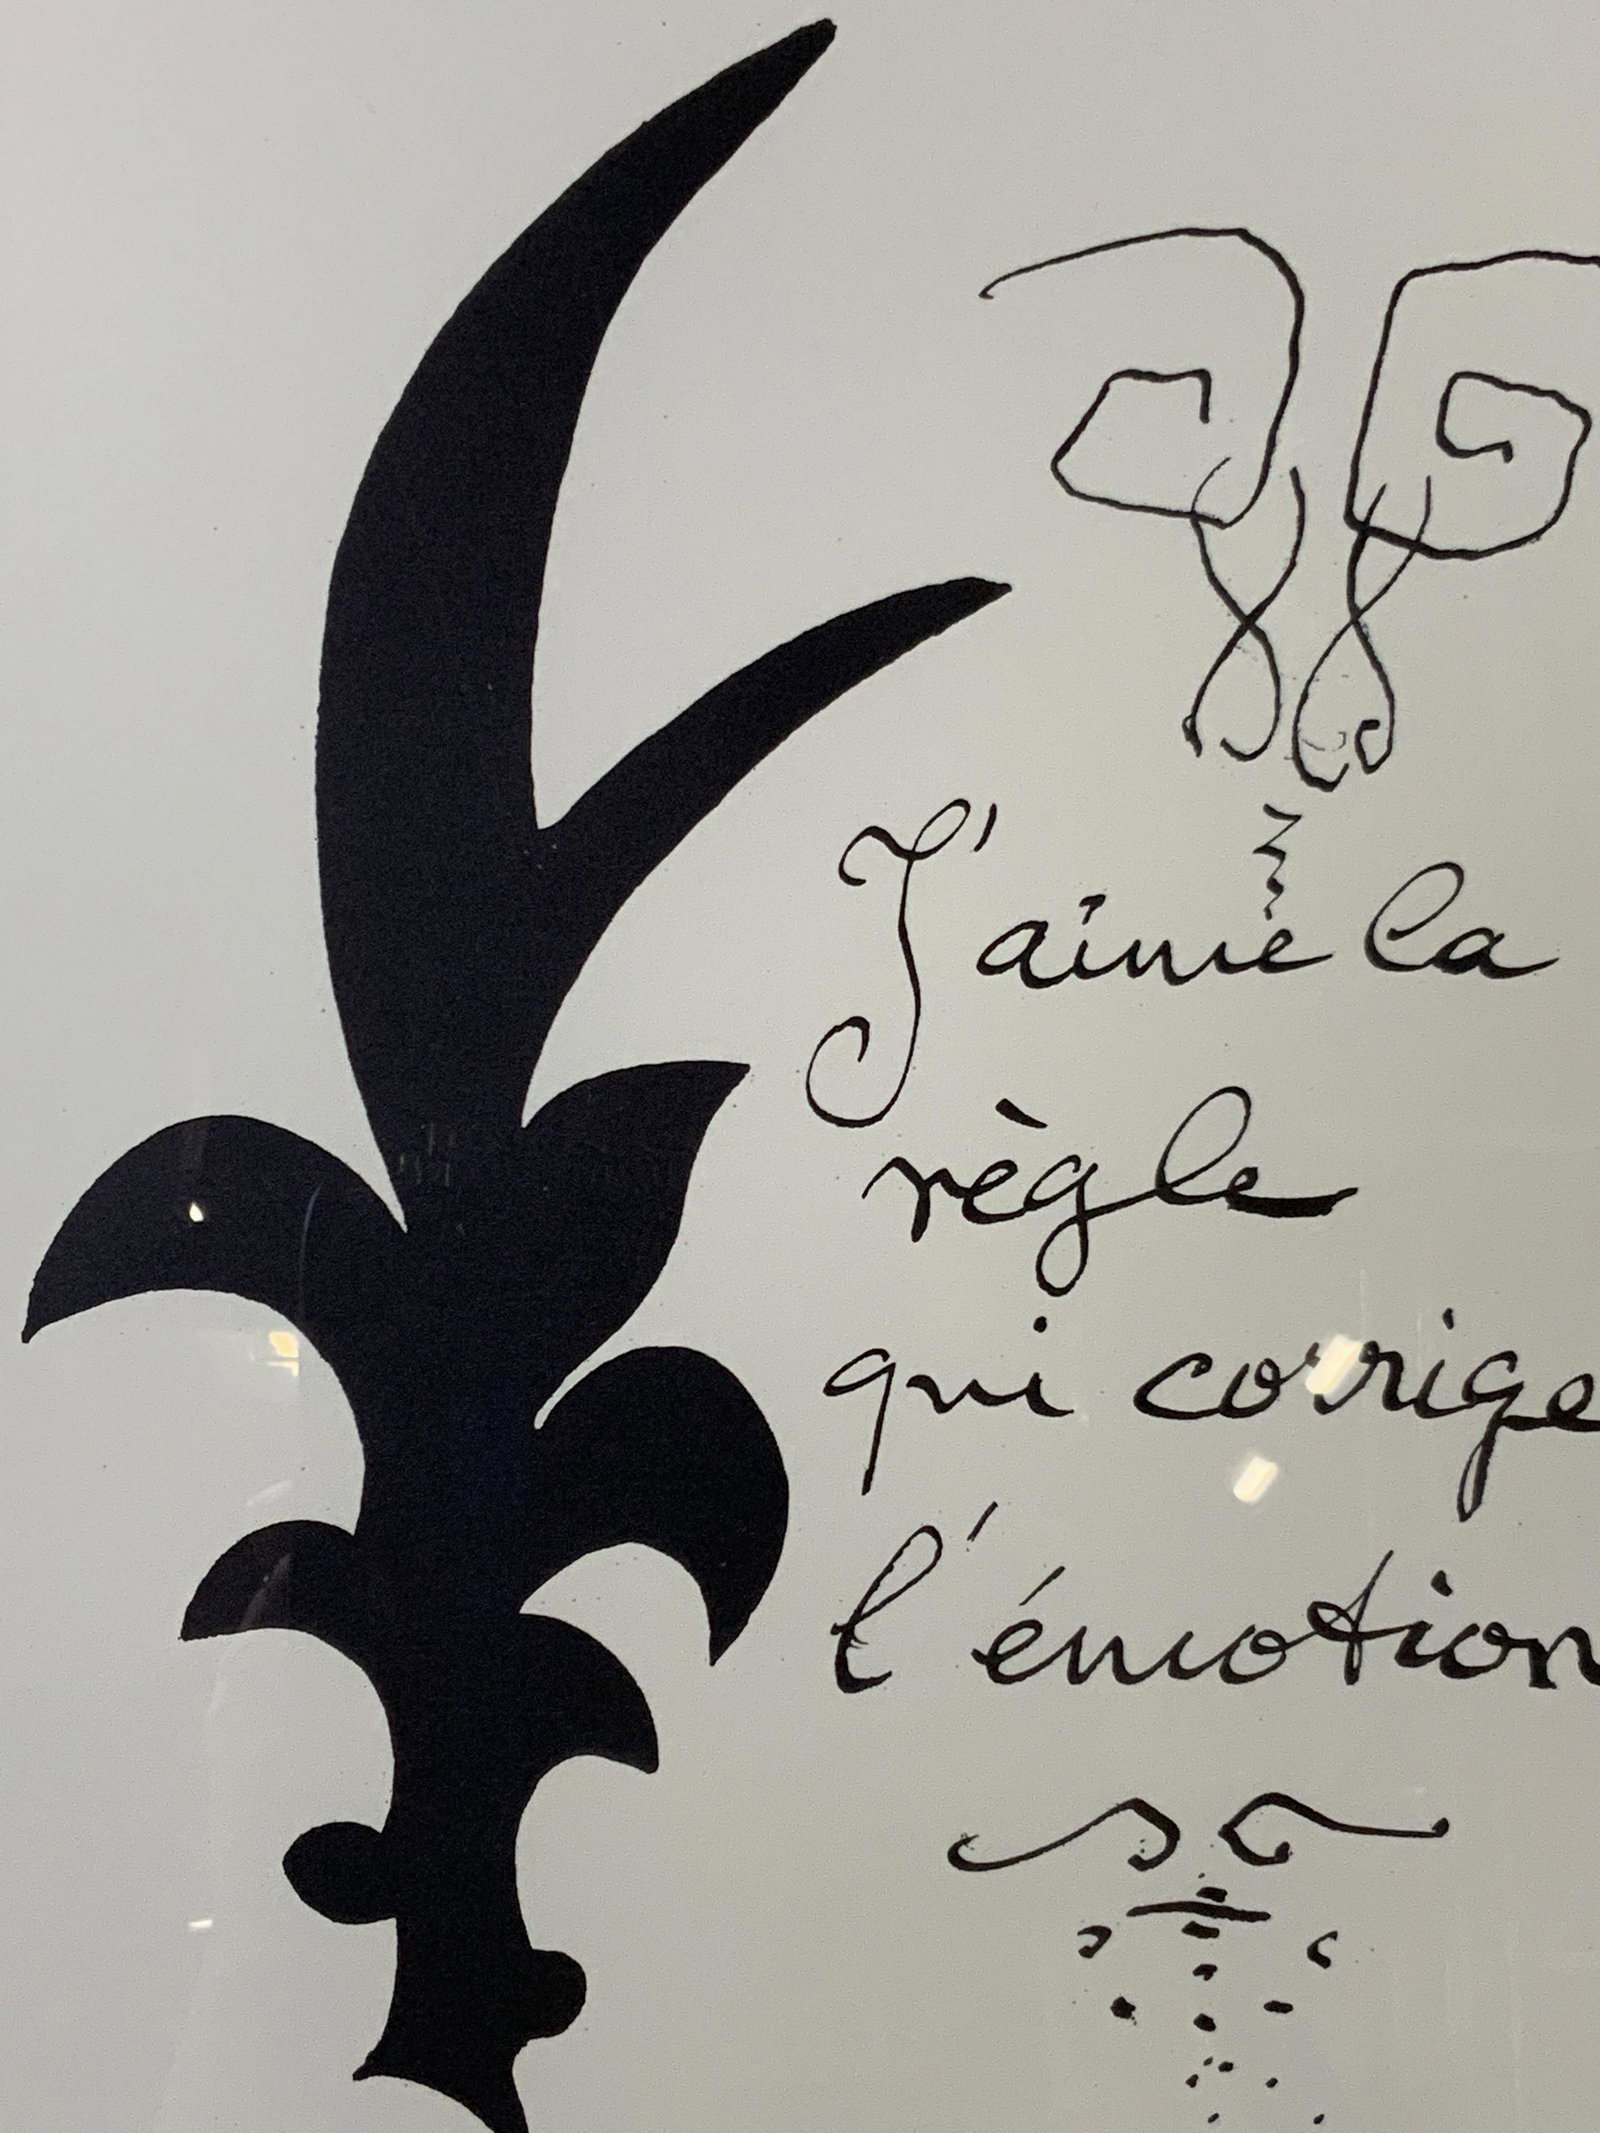 J'aime la
règle
qui corrige
l'émotion